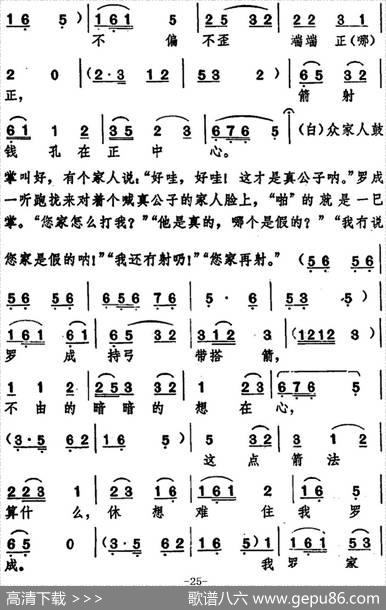 1 6 5 ) | 1 6 1 5 | 2 5 3 2 | 2 2 3 1 |
不 偏 不歪 端端 正(哪)
2 0 | ( 2·3 1 2 | 5 3 2 ) | 6 5 3 2 |
正, 箭 射
6 1 1 2 | 3 5 2 3 | 5 6 7 6 5 | (白)众家人鼓
钱 孔 在 正 中 心。
掌叫好,有个家人说:“好哇,好哇!这才是真公子呐。”罗成
一听跑找来对着个喊真公子的家人脸上,“啪”的就是一巴
掌。“您家怎么打我?”“他是真的,哪个是假的?”“我冇说
您家是假的呐!”“我还冇射哟!”“您家再射。” ( 5 6 5 6 |
5 6 5 6 | 6 5 6 7 6 | 5 · 6 | 5 3 ·5 ) |
1 6 1 6 1 | 6 5 3 2 | 3 1 2 3 | ( 1 2 1 2 3 ) |
罗 成 持弓 带搭 箭,
1 1 2 | 2 5 3 3 2 | 1 2 3 | 6 7 6 5 |
不 由 的 暗 暗 的 想 在 心,
( 3·5 6 2 | 1 6 5 ) | 5 3 2 | 3 1 2 |
这 点 箭 法
2 2 3 1 | 2 3 1 6 | 1 6 1 2 | 1 6 5 |
算什 么,休 想 难 住 我 罗
6 5 0 | ( 3·5 6 2 | 1 6 5 ) 1 | 6 1 1 |
成。 我 罗 家
-25-
高清下载 >>> 歌谱八六 www.gepu86.com